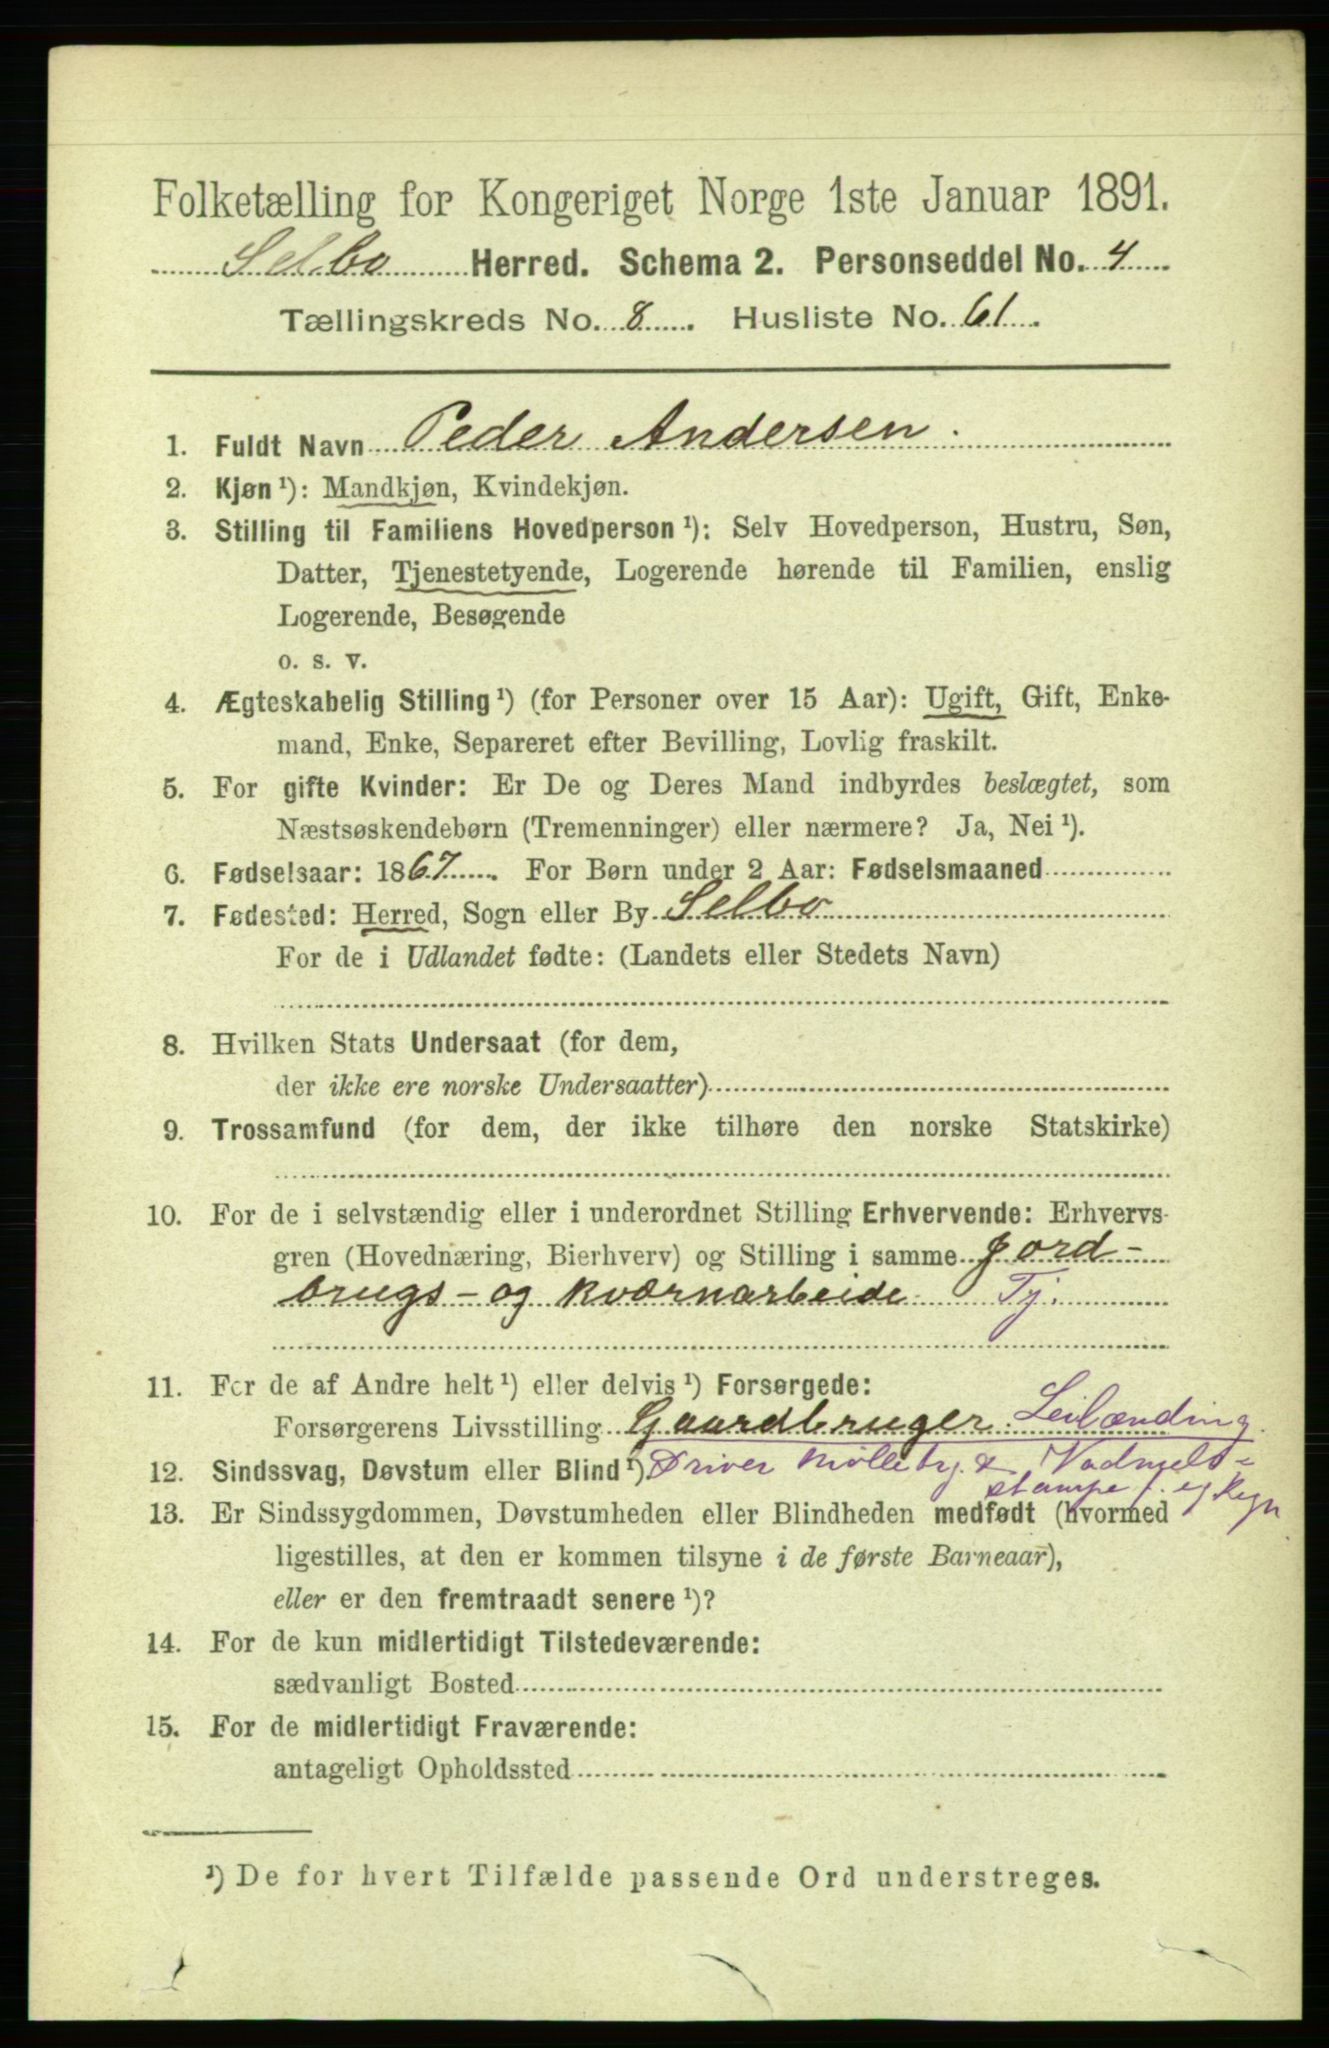 Folketælling for Kongeriget Norge 1ste Januar 1891.
Selbo Herred. Schema 2. Personseddel No. 4
Tællingskreds No. 8. Husliste No. 61.
1. Fuldt Navn Peder Andersen.
2. Kjøn ¹): Mandkjøn, Kvindekjøn.
3. Stilling til Familiens Hovedperson ¹): Selv Hovedperson, Hustru, Søn,
Datter, Tjenestetyende, Logerende hørende til Familien, enslig
Logerende, Besøgende
o. s. v.
4. Ægteskabelig Stilling ¹) (for Personer over 15 Aar): Ugift, Gift, Enke-
mand, Enke, Separeret efter Bevilling, Lovlig fraskilt.
5. For gifte Kvinder: Er De og Deres Mand indbyrdes beslægtet, som
Næstsøskendebørn (Tremenninger) eller nærmere? Ja, Nei ¹).
6. Fødselsaar: 1867. For Børn under 2 Aar: Fødselsmaaned
7. Fødested: Herred, Sogn eller By Selbo
For de i Udlandet fødte: (Landets eller Stedets Navn)
8. Hvilken Stats Undersaat (for dem,
der ikke ere norske Undersaatter)
9. Trossamfund (for dem, der ikke tilhøre den norske Statskirke)
10. For de i selvstændig eller i underordnet Stilling Erhvervende: Erhvervs-
gren (Hovednæring, Bierhverv) og Stilling i samme Jord-
brugs- og kværnarbeide Tj.
11. For de af Andre helt ¹) eller delvis ¹) Forsørgede:
Forsørgerens Livsstilling Gaardbruger. Leilænding.
12. Sindssvag, Døvstum eller Blind ¹) Driver Mølleby. & Vadmels-
stampe f. eg Regn.
13. Er Sindssygdommen, Døvstumheden eller Blindheden medfødt (hvormed
ligestilles, at den er kommen tilsyne i de første Barneaar),
eller er den fremtraadt senere ¹)?
14. For de kun midlertidigt Tilstedeværende:
sædvanligt Bosted
15. For de midlertidigt Fraværende:
antageligt Opholdssted
¹) De for hvert Tilfælde passende Ord understreges.